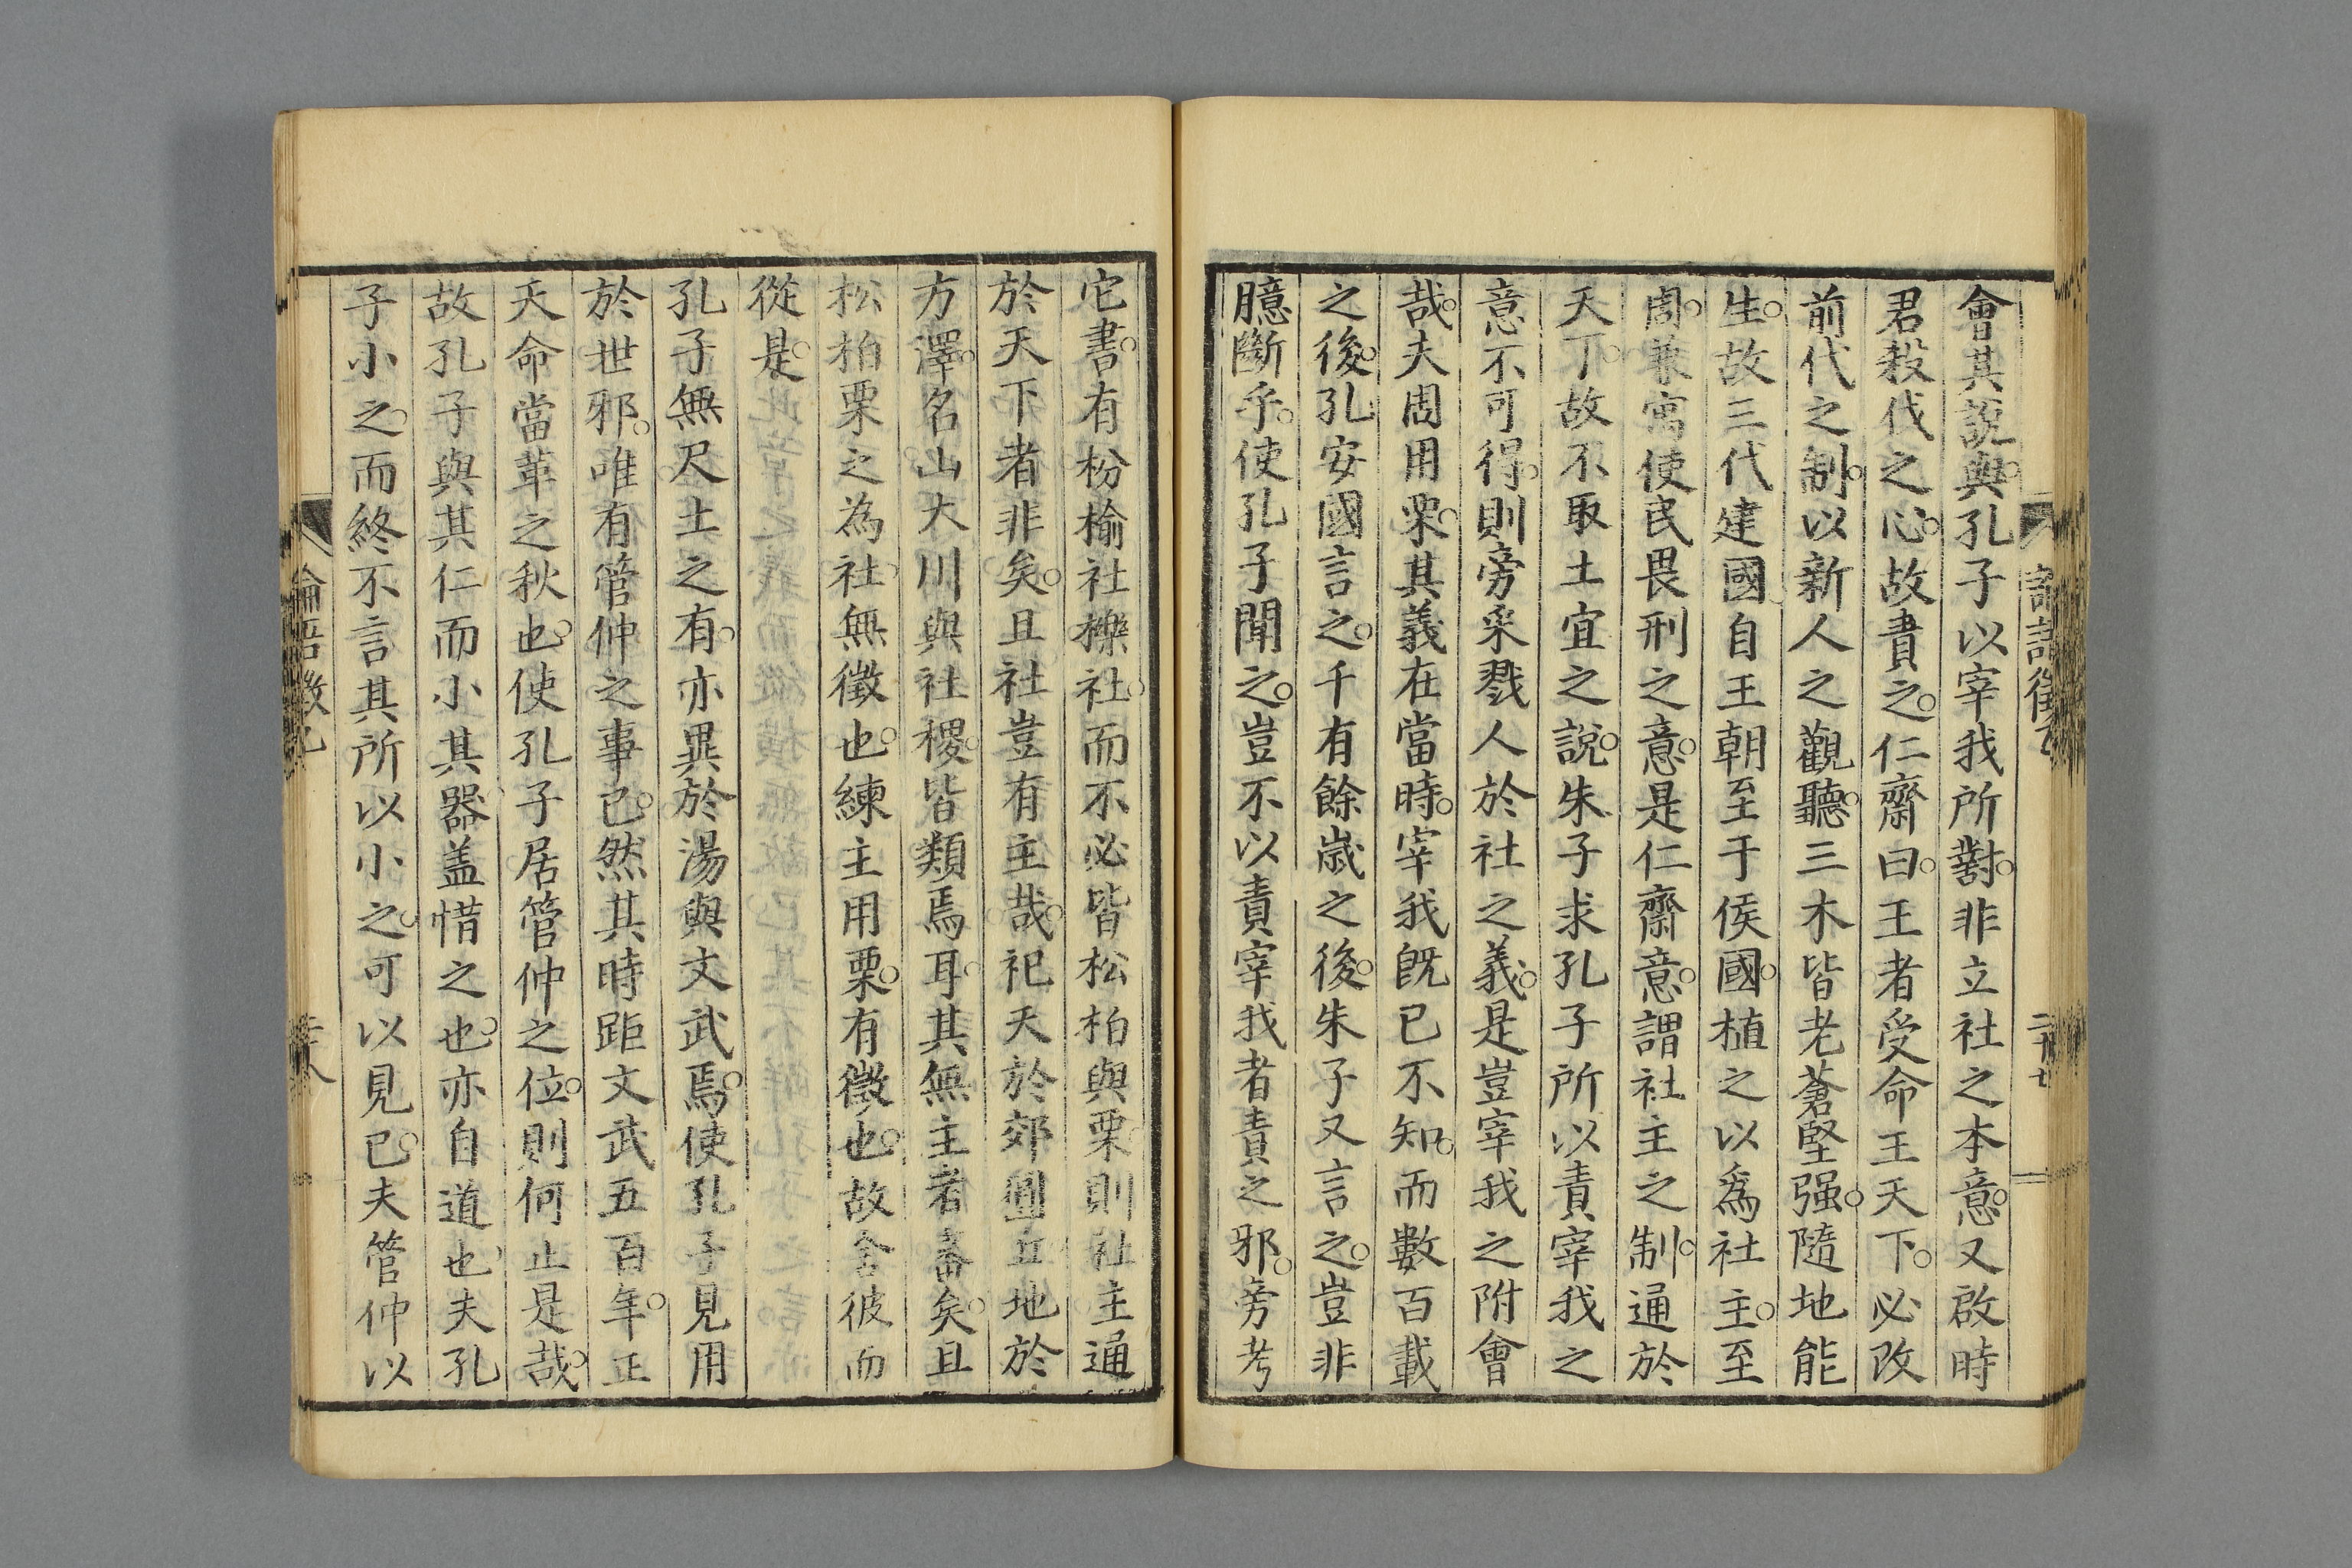 會其說與孔子以宰我所對非立社之本意又啟時
君殺伐之心故責之仁齋曰王者受命王天下必改
前代之制以新人之觀聽三木皆老蒼堅强隨地能
生故三代建國自王朝至于侯國植之以為社主至
周兼寓使民畏刑之意是仁齋意謂社主之制通於
天下故不取土宜之說朱子求孔子所以責宰我之
意不可得則旁采戮人於社之義是豈宰我之附會
哉夫周用栗其義在當時宰我既已不知而數百載
之後孔安國言之千有餘歲之後朱子又言之豈非
臆斷乎使孔子聞之豈不以責宰我者責之邪旁考
二十七
它書有枌榆社櫟社而不必皆松柏與栗則社主通
於天下者非矣且社豈有主哉祀天於郊圜丘地於
方澤名山大川與社稷皆類焉耳其無主者審矣且
松柏栗之為社無徵也練主用栗有徵也故舍彼而
從是
孔子無尺土之有亦異於湯與文武焉使孔子見用
於世邪唯有管仲之事已然其時距文武五百年正
天命當革之秋也使孔子居管仲之位則何止是哉
故孔子與其仁而小其器盖惜之也亦自道也夫孔
子小之而終不言其所以小之可以見已夫管仲以
論語徵乙